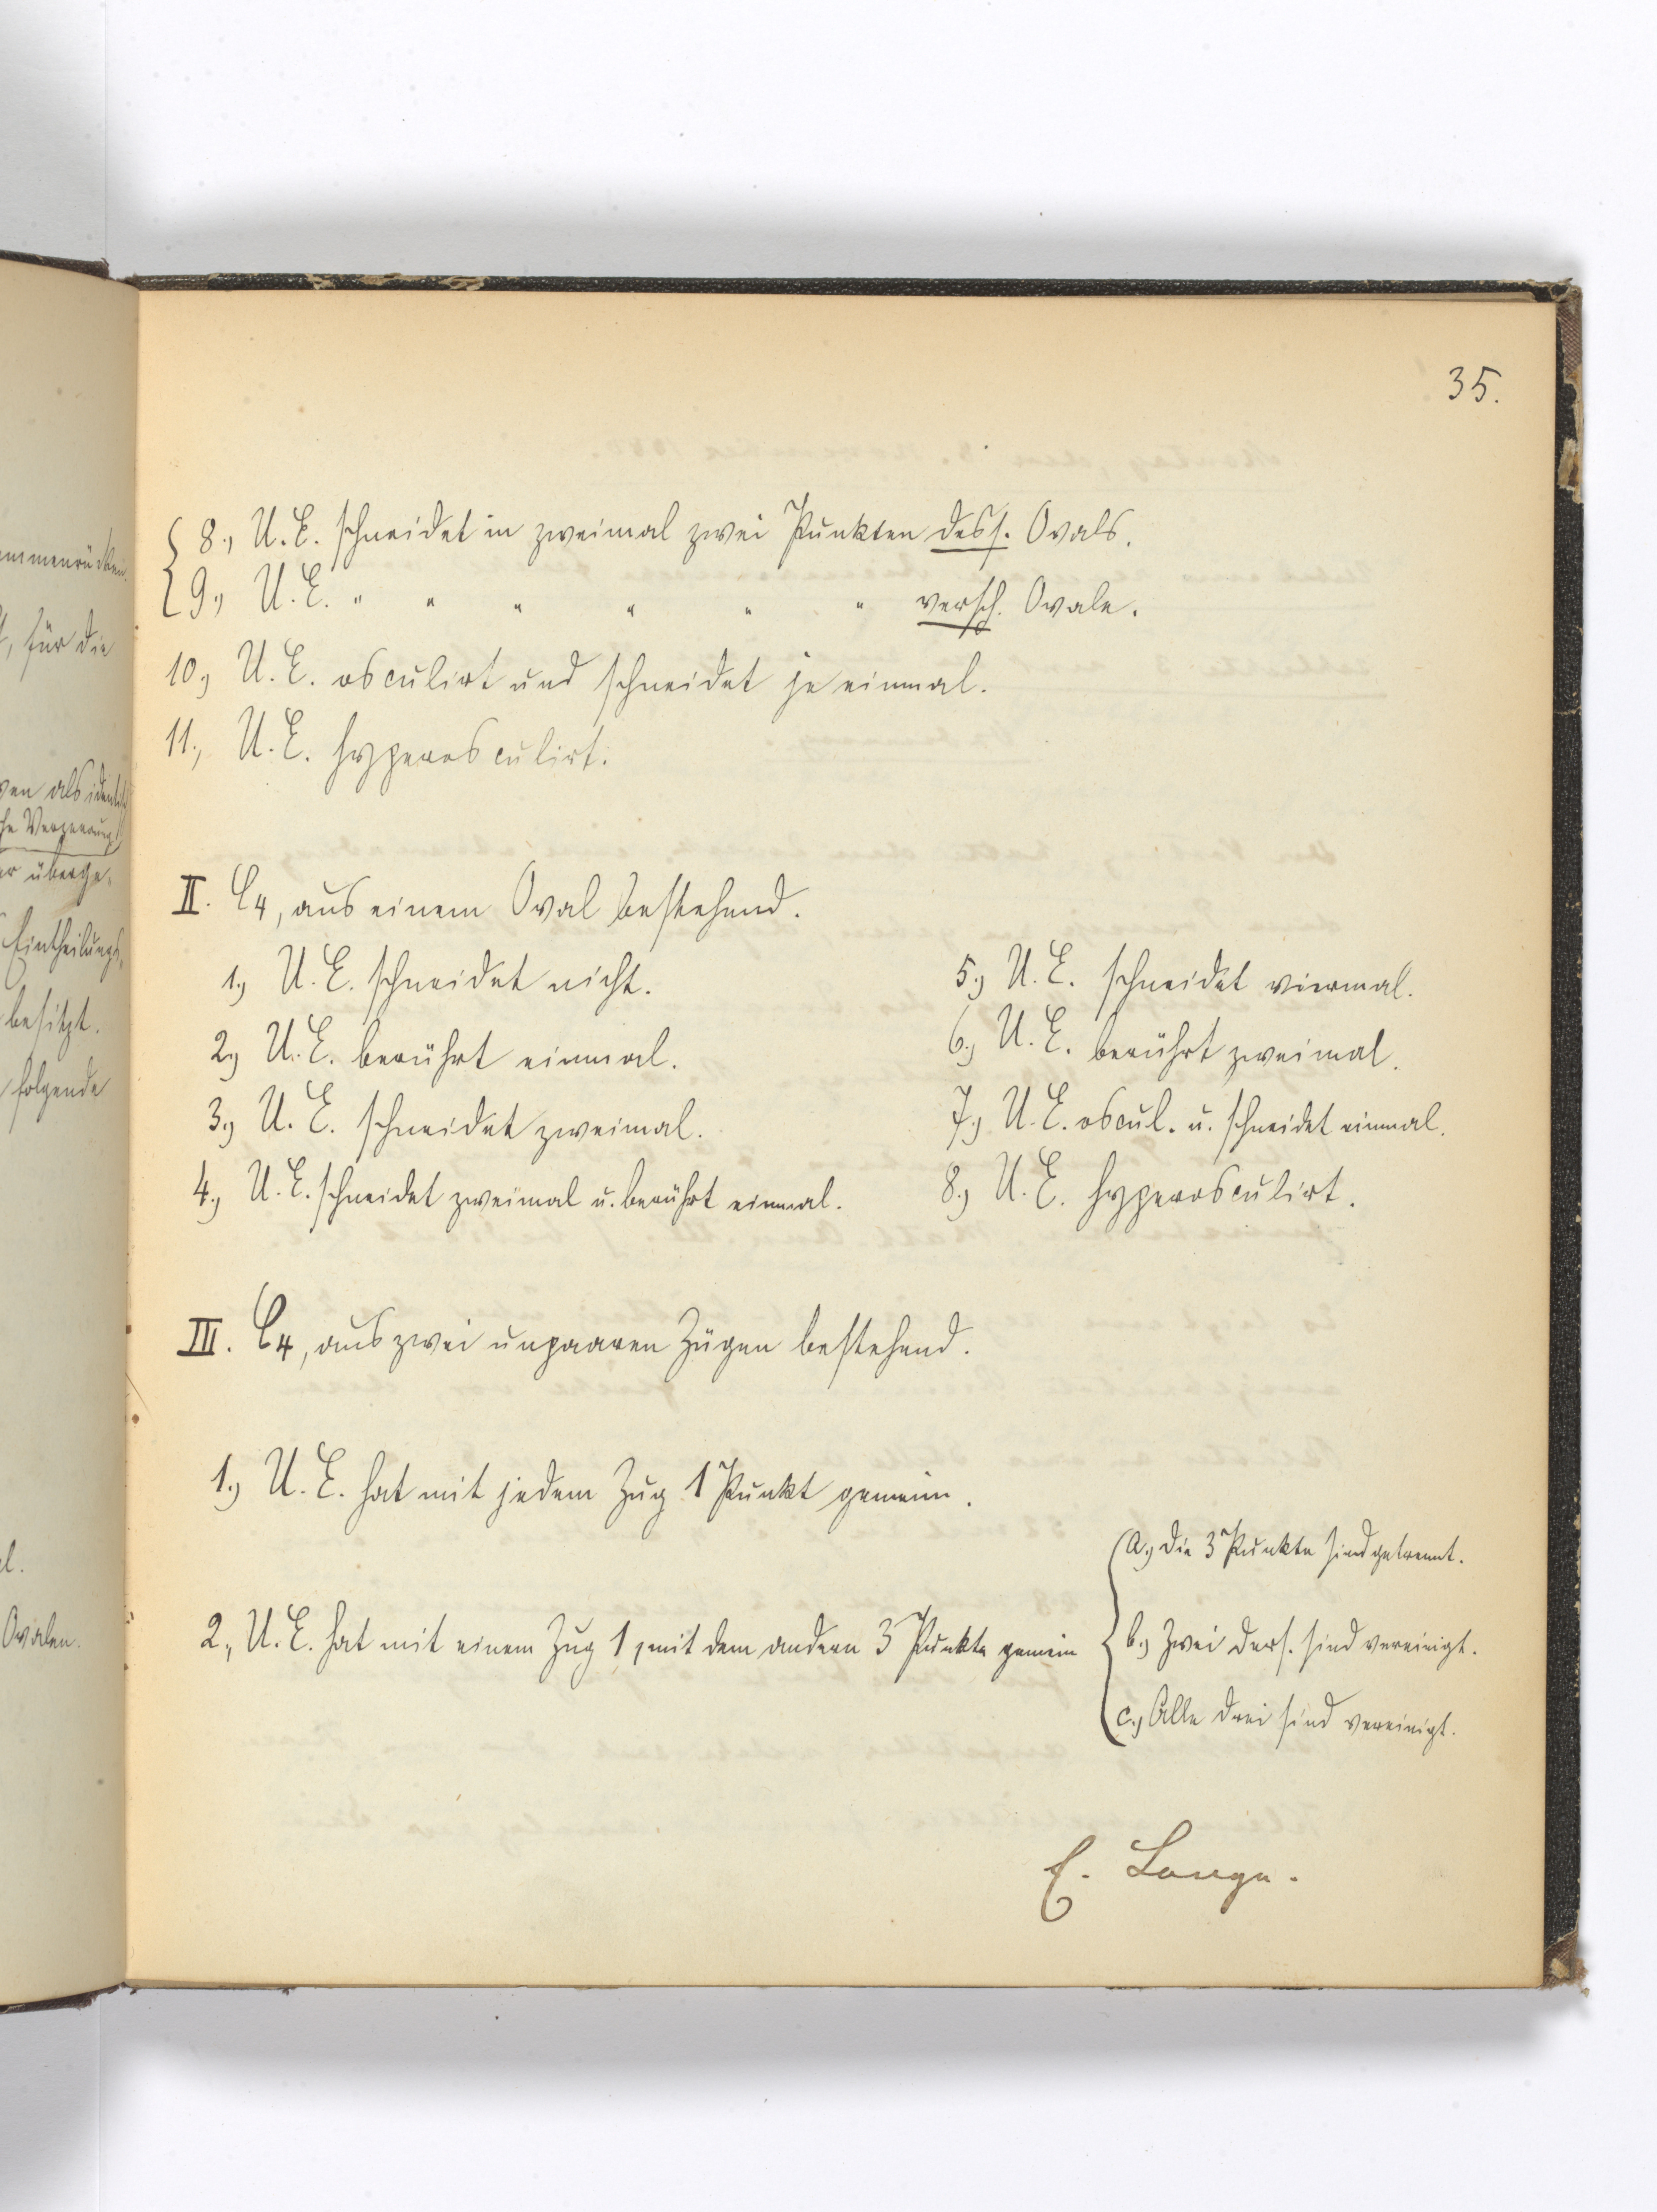 35.
8., U. E. schneidet in zweimal zwei Punkten dess. Ovals.
9., U. E. " " " " " " versch. Ovale.
10., U. E. osculirt und schneidet je einmal.
11., U. E. hyperosculirt.
II. C4, aus einem Oval bestehend.
1., U. E. schneidet nicht.
2., U. E. berührt einmal.
3., U. E. schneidet zweimal.
4., U. E. schneidet zweimal u. berührt einmal.
5., U. E. schneidet viermal.
6., U. E. berührt zweimal.
7., U. E. oscul. u. schneidet einmal.
8., U. E. hyperosculirt.
III. C4, aus zwei unpaaren Zügen bestehend.
1., U. E. hat mit jedem Zug 1 Punkt gemein.
2., U. E. hat mit einem Zug 1, mit dem andern 3 Punkte gemein
a., Die 3 Punkte sind getrennt.
b., Zwei ders. sind vereinigt.
c., Alle drei sind vereinigt.
E. Lange.
mmenrücken
, für die
ven als identisch
he Verzerrung
er überge-
Eintheilungs-
besitzt.
folgende
l.
Ovalen.